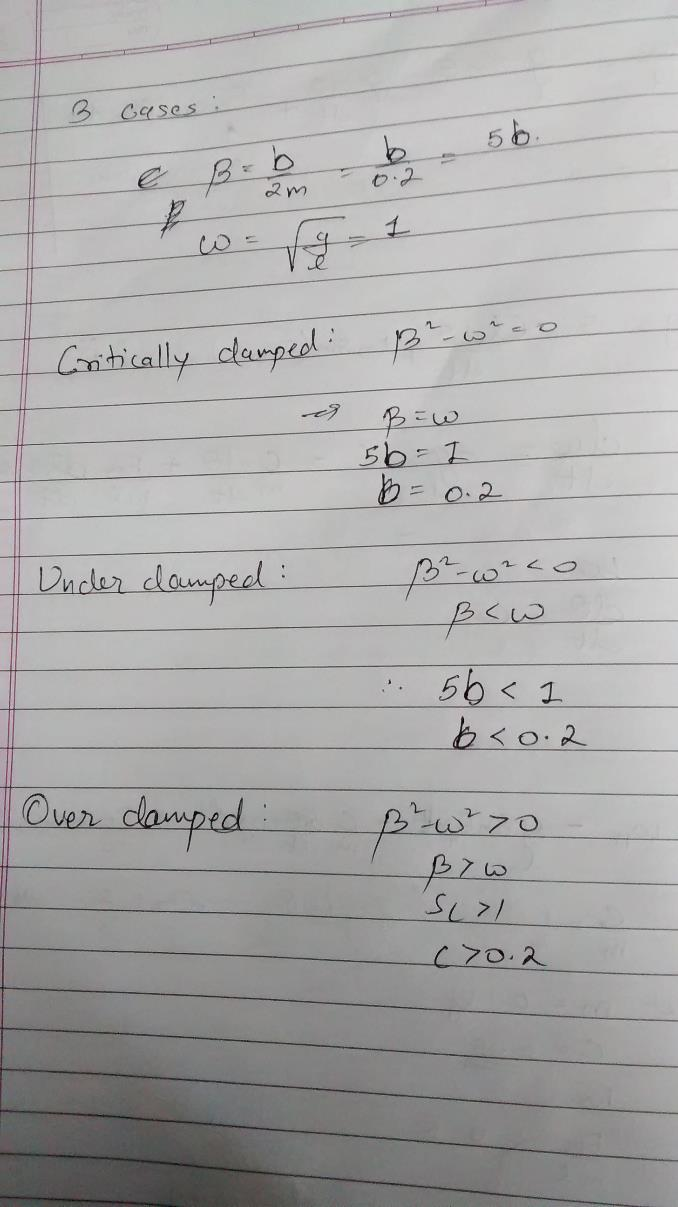 3 Cases:
β = b/2m = b/0.2 = 5b.
ω = √(g/l) = 1
Critically damped: β² - ω² = 0
→ β = ω
5b = 1
b = 0.2
Under damped: β² - ω² < 0
β < ω
∴ 5b < 1
b < 0.2
Over damped: β² - ω² > 0
β > ω
5c > 1
c > 0.2